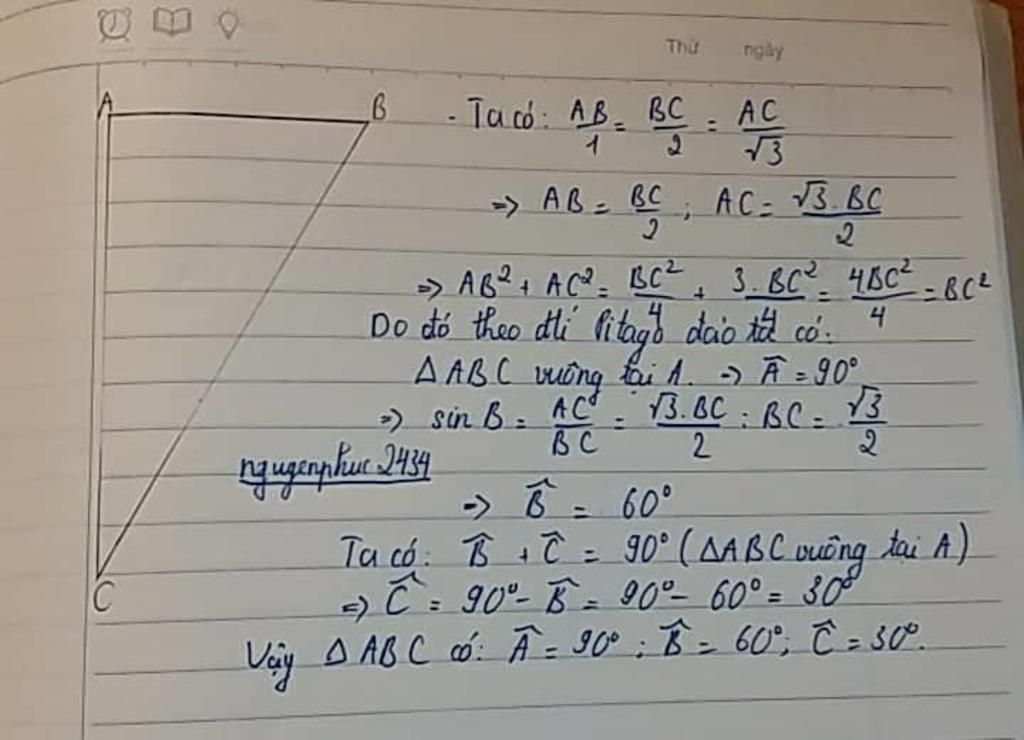 Thứ ngày
A
B
- Ta có: AB/1 = BC/2 = AC/√3
=> AB = BC/2 ; AC = √3.BC/2
=> AB² + AC² = BC²/4 + 3.BC²/4 = 4BC²/4 = BC²
Do đó theo đlí Pitago đảo ta có:
△ABC vuông tại A. -> Â = 90°
=> sin B = AC/BC = √3.BC/2 : BC = √3/2
nguyenphuc2434
-> B̂ = 60°
Ta có: B̂ + Ĉ = 90° (△ABC vuông tại A)
C
=> Ĉ = 90° - B̂ = 90° - 60° = 30°
Vậy △ABC có: Â = 90° ; B̂ = 60° ; Ĉ = 30°.